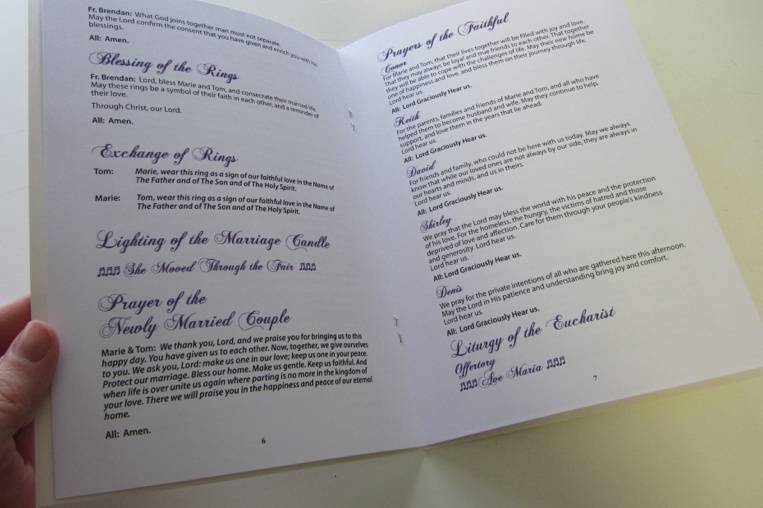 Fr. Brendan: What God joins together man must not separate.
May the Lord confirm the consent that you have given and enrich you with his
blessings.
All: Amen.
Blessing of the Rings
Fr. Brendan: Lord, bless Marie and Tom, and consecrate their married life.
May these rings be a symbol of their faith in each other, and a reminder of
their love.
Through Christ, our Lord.
All: Amen.
Exchange of Rings
Tom: Marie, wear this ring as a sign of our faithful love in the Name of
The Father and of The Son and of The Holy Spirit.
Marie: Tom, wear this ring as a sign of our faithful love in the Name of
The Father and of The Son and of The Holy Spirit.
Lighting of the Marriage Candle
She Moved Through the Fair
Prayer of the
Newly Married Couple
Marie & Tom: We thank you, Lord, and we praise you for bringing us to this
happy day. You have given us to each other. Now, together, we give ourselves
to you. We ask you, Lord: make us one in our love; keep us one in your peace.
Protect our marriage. Bless our home. Make us gentle. Keep us faithful. And
when life is over unite us again where parting is no more in the kingdom of
your love. There we will praise you in the happiness and peace of our eternal
home.
All: Amen.
6
Prayers of the Faithful
Conor
For Marie and Tom, that their lives together will be filled with joy and love.
That they may always be loyal and true friends to each other. That together
they will be able to cope with the challenges of life. May their new home be
one of happiness and love, and bless them on their journey through life.
Lord hear us.
All: Lord Graciously Hear us.
Keith
For the parents, families and friends of Marie and Tom, and all who have
helped them to become husband and wife. May they continue to help,
support, and love them in the years that lie ahead.
Lord hear us.
All: Lord Graciously Hear us.
David
For friends and family, who could not be here with us today. May we always
know that while our loved ones are not always by our side, they are always in
our hearts and minds, and us in theirs.
Lord hear us.
All: Lord Graciously Hear us.
Shirley
We pray that the Lord may bless the world with his peace and the protection
of his love. For the homeless, the hungry, the victims of hatred and those
deprived of love and affection. Care for them through your people's kindness
and generosity. Lord hear us.
Lord hear us.
All: Lord Graciously Hear us.
Denis
We pray for the private intentions of all who are gathered here this afternoon.
May the Lord in His patience and understanding bring joy and comfort.
Lord hear us.
All: Lord Graciously Hear us.
Liturgy of the Eucharist
Offertory
Ave Maria
7